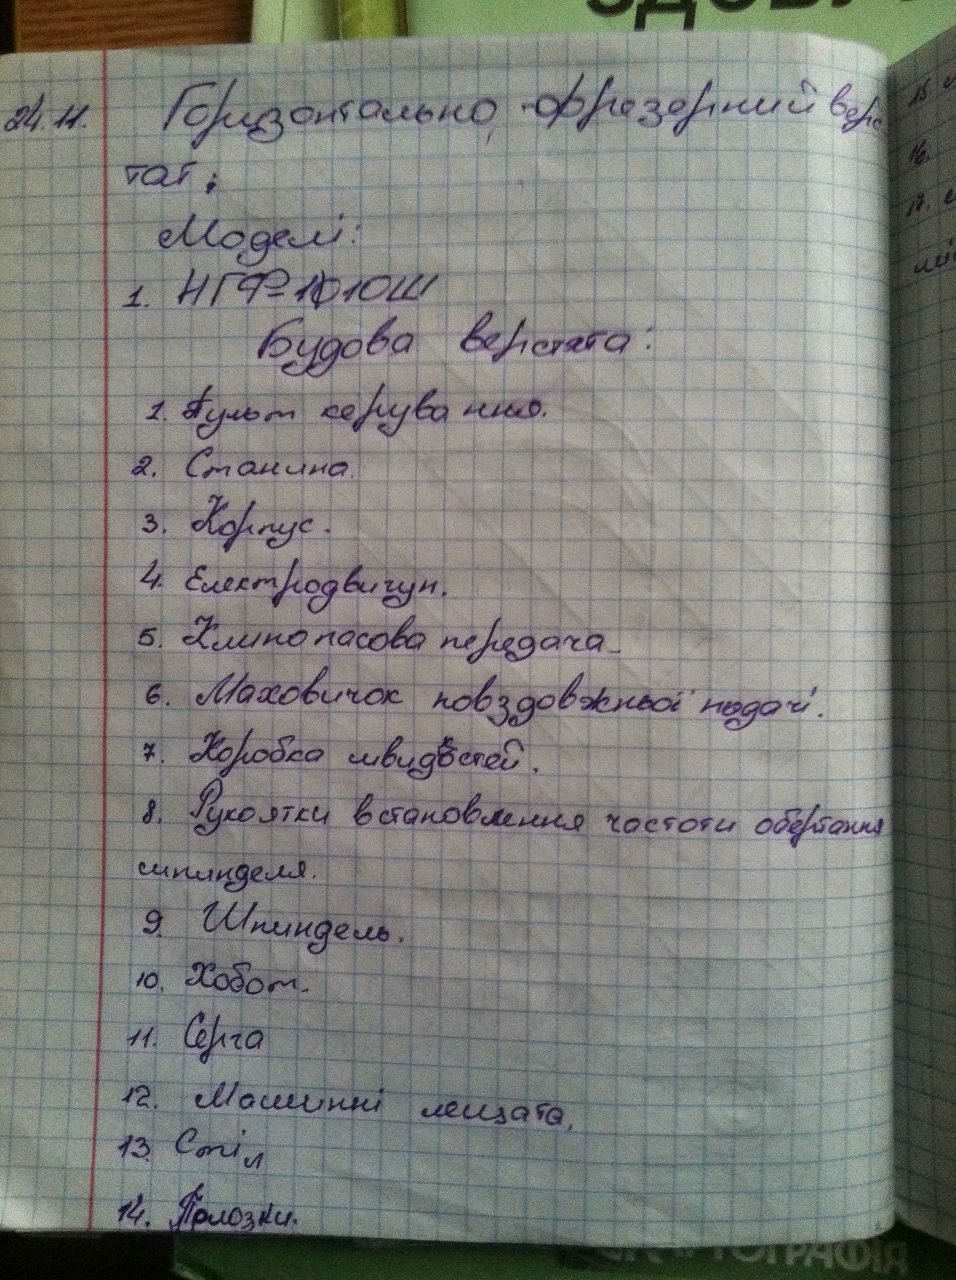 ЗДОБУ
24.11. Горизонтально-фрезерний верс
тат:
Моделі:
1. НГФ-1010Ш
Будова верстата:
1. Пульт керування.
2. Станина.
3. Корпус.
4. Електродвигун.
5. Клинопасова передача.
6. Маховичок повздовжньої подачі.
7. Коробка швидкостей.
8. Рукоятки встановлення частоти обертання
шпинделя.
9. Шпиндель.
10. Хобот.
11. Серга
12. Машинні лещата.
13. Стіл
14. Полозки.
15
16.
17.